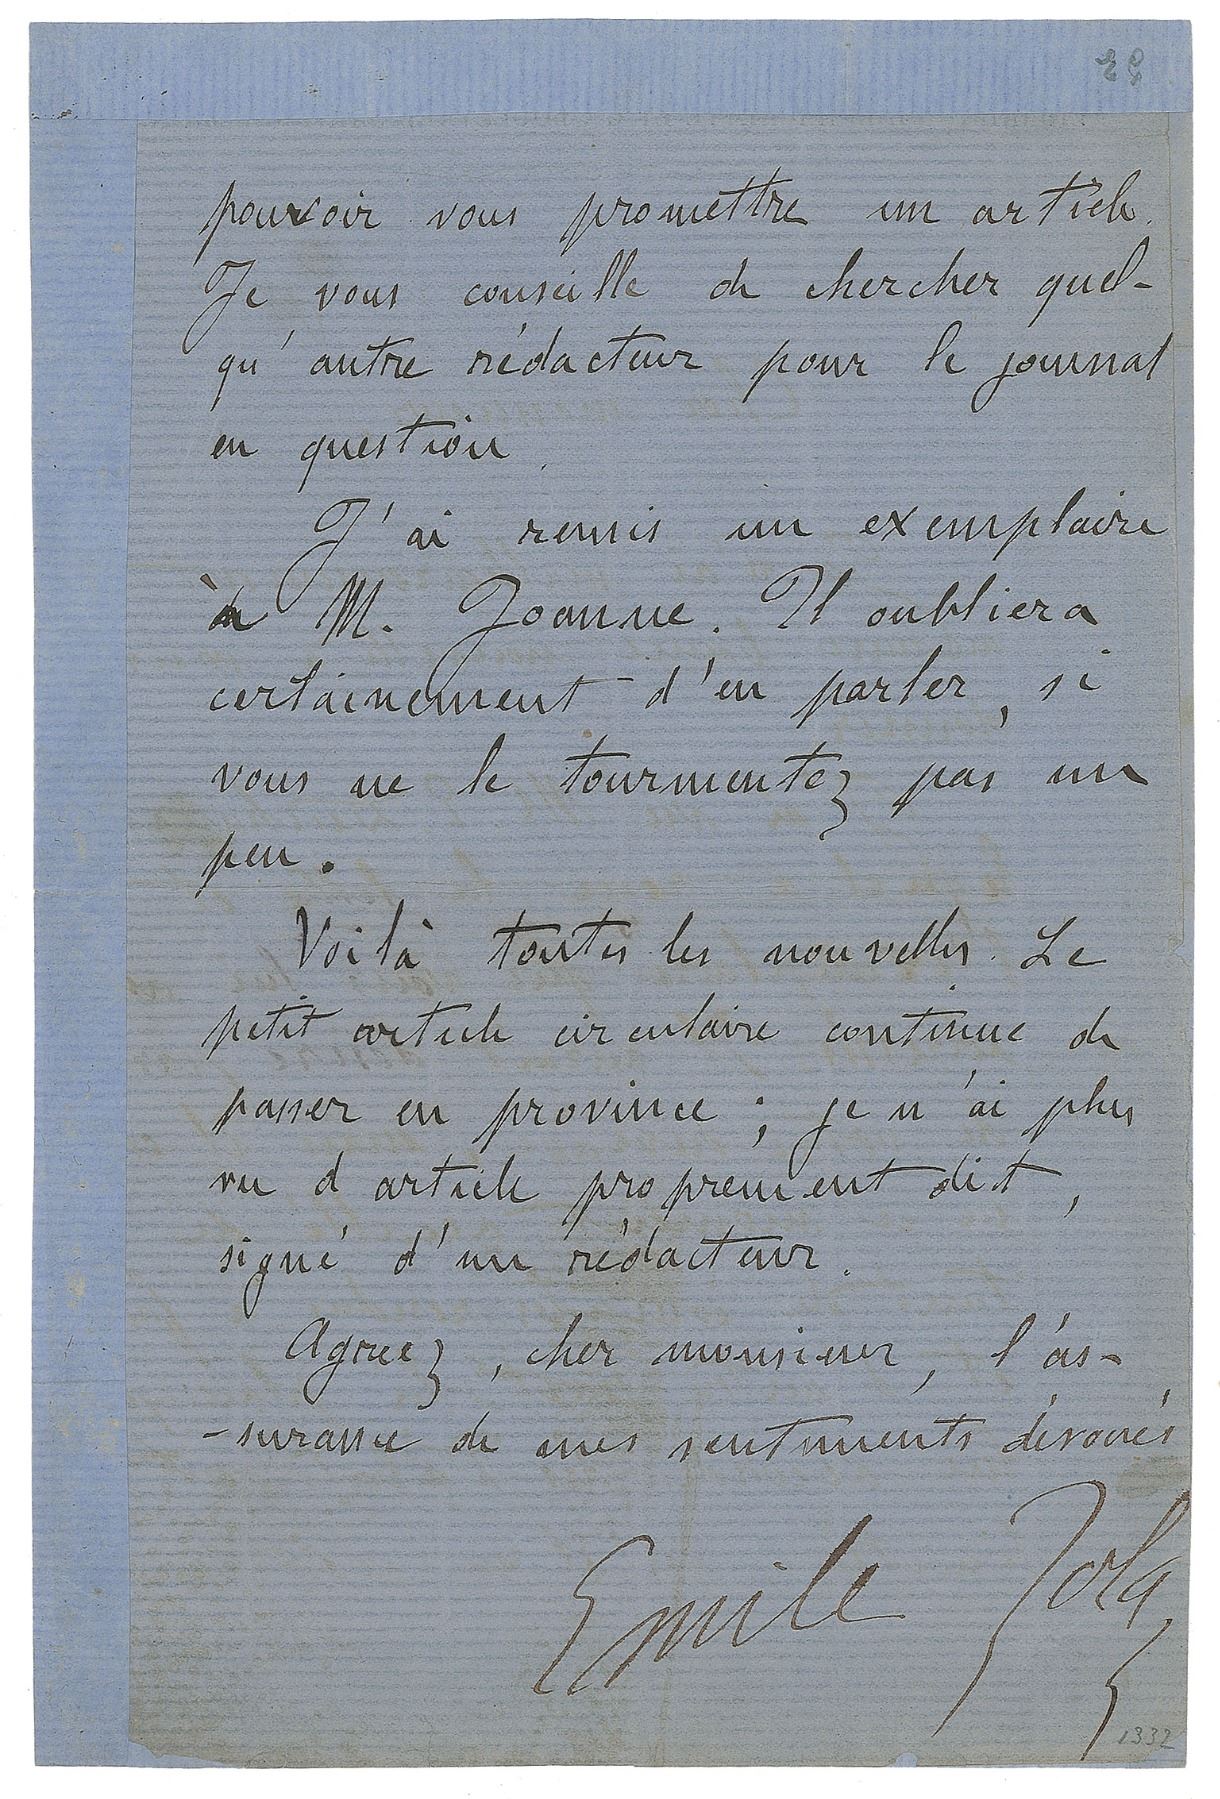 pouvoir vous promettre un article.
Je vous conseille de chercher quel-
qu'autre rédacteur pour le journal
en question.
J'ai remis un exemplaire
à M. Joanne. Il oubliera
certainement d'en parler, si
vous ne le tourmentez pas un
peu.
Voilà toutes les nouvelles. Le
petit article circulaire continue de
passer en province ; je n'ai plus
vu d'article proprement dit,
signé d'un rédacteur.
Agréez, cher monsieur, l'as-
-surance de mes sentiments dévoués
Emile Zola
1332